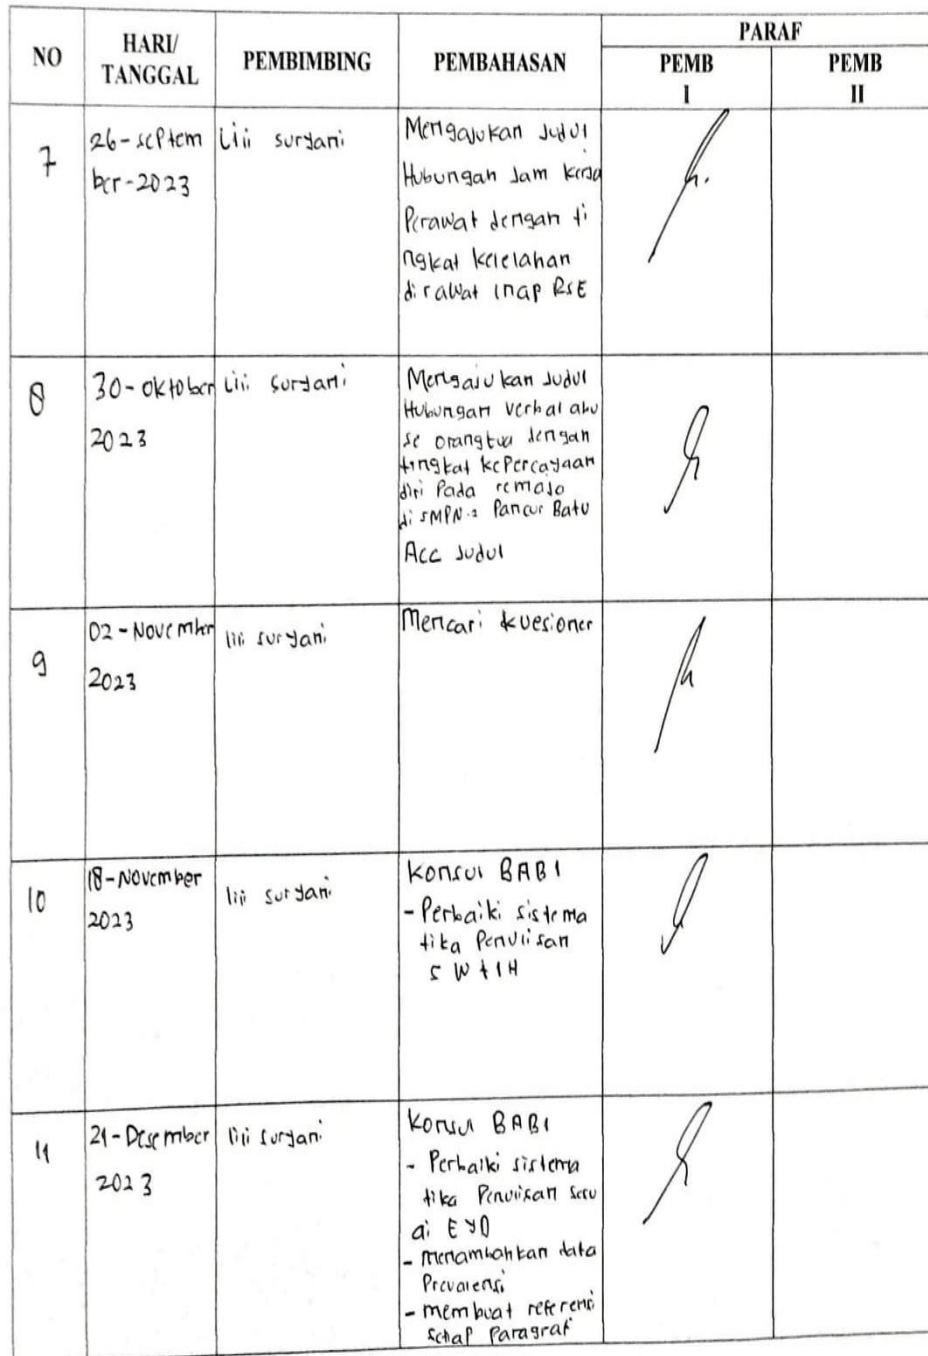 NO
HARI/
TANGGAL
PEMBIMBING
PEMBAHASAN
PARAF
PEMB
I
PEMB
II
7
26-september-2023
Lili suryani
Mengajukan Judul
Hubungan Jam kerja
Perawat dengan ti
ngkat kelelahan
dirawat inap RSE
8
30-oktober
2023
Lili suryani
Mengajukan Judul
Hubungan verbal abu
se orangtua dengan
tingkat kepercayaan
diri Pada remaja
di SMPN.2 Pancur Batu
Acc Judul
9
02-November
2023
lili suryani
Mencari kuesioner
10
18-November
2023
lili suryani
Konsul BAB1
- Perbaiki sistema
tika Penulisan
5 W + 1H
11
21-Desember
2023
lili suryani
Konsul BAB1
- Perbaiki sistema
tika Penulisan sesu
ai EYD
- menambahkan data
Prevalensi
- membuat referensi
setiap Paragraf